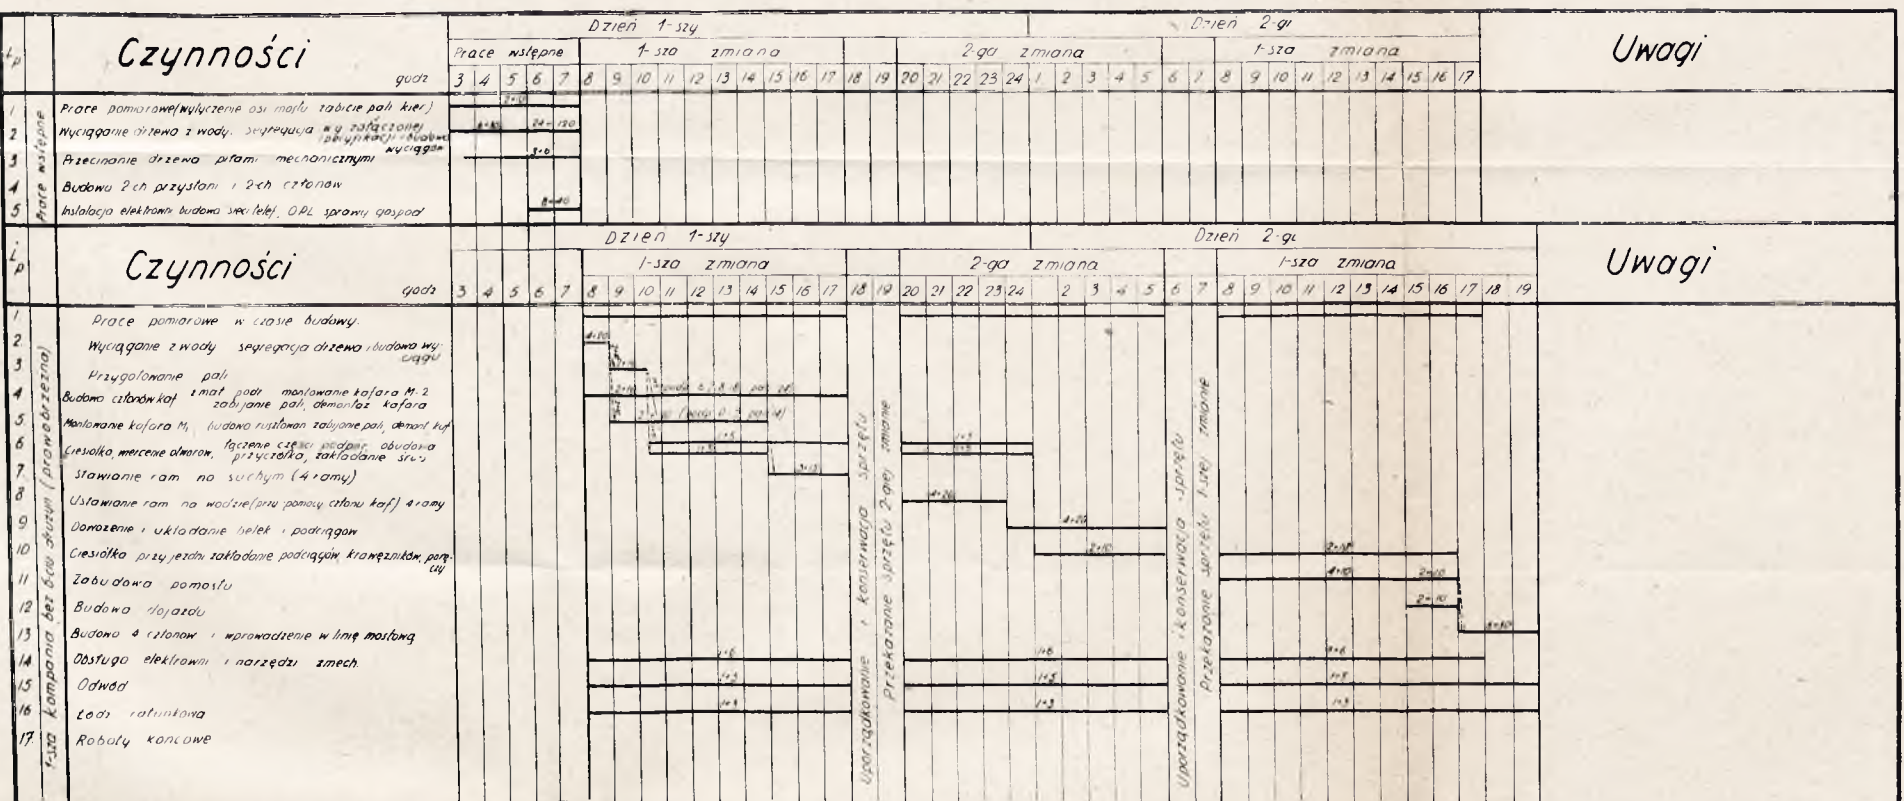 Lp
Czynności
godz
Dzień 1-szy
Dzień 2-gi
Uwagi
Prace wstępne
1-sza zmiana
2-ga zmiana
1-sza zmiana
3 4 5 6 7 8 9 10 11 12 13 14 15 16 17 18 19 20 21 22 23 24 1 2 3 4 5 6 7 8 9 10 11 12 13 14 15 16 17
Prace wstępne
1 Prace pomiarowe (wytyczenie osi mostu zabicie pali kier.)
2 Wyciąganie drzewa z wody, segregacja wg załączonej
specyfikacji i budowa
wyciągów
24-120
3 Przecinanie drzewa piłami mechanicznymi
3-6
4 Budowa 2-ch przystani i 2-ch członów
5 Instalacja elektrowni budowa sieci telef. OPL sprawy gospod
8-40
Lp
Czynności
godz
Dzień 1-szy
Dzień 2-gi
Uwagi
1-sza zmiana
2-ga zmiana
1-sza zmiana
3 4 5 6 7 8 9 10 11 12 13 14 15 16 17 18 19 20 21 22 23 24 2 3 4 5 6 7 8 9 10 11 12 13 14 15 16 17 18 19
1-sza kompania bez 6-ciu drużyn (prawobrzeżna)
1. Prace pomiarowe w czasie budowy.
2. Wyciąganie z wody segregacja drzewa i budowa wy-
ciągu
4-20
3. Przygotowanie pali
4 Budowa członów kaf z mat podr montowanie kafara M-2
zabijanie pali, demontaż kafara
5. Montowanie kafara M, budowa rusztowań zabijanie pali, demont kaf
6 Ciesiołka, wiercenie otworów, łączenie części podpór, obudowa
przyczółka, zakładanie śrub
7. Stawianie ram na suchym (4 ramy)
8 Ustawianie ram na wodzie (przy pomocy członu kaf) 4 ramy
4-20
9 Dowożenie i układanie belek i podciągów
4-20
10 Ciesiołka przy jezdni zakładanie podciągów, krawężników, porę-
czy
2-10
2-10
11 Zabudowa pomostu
4-10
2-10
12 Budowa dojazdu
2-10
13 Budowa 4 członów i wprowadzenie w linię mostową
14 Obsługa elektrowni i narzędzi zmech.
1-6
1-6
1-6
15 Odwód
1-3
1-3
1-3
16 Łódź ratunkowa
1-3
1-3
1-3
17. Roboty końcowe
Uporządkowanie i konserwacja sprzętu
Przekazanie sprzętu 2-giej zmianie
Uporządkowanie i konserwacja sprzętu
Przekazanie sprzętu 1-szej zmianie